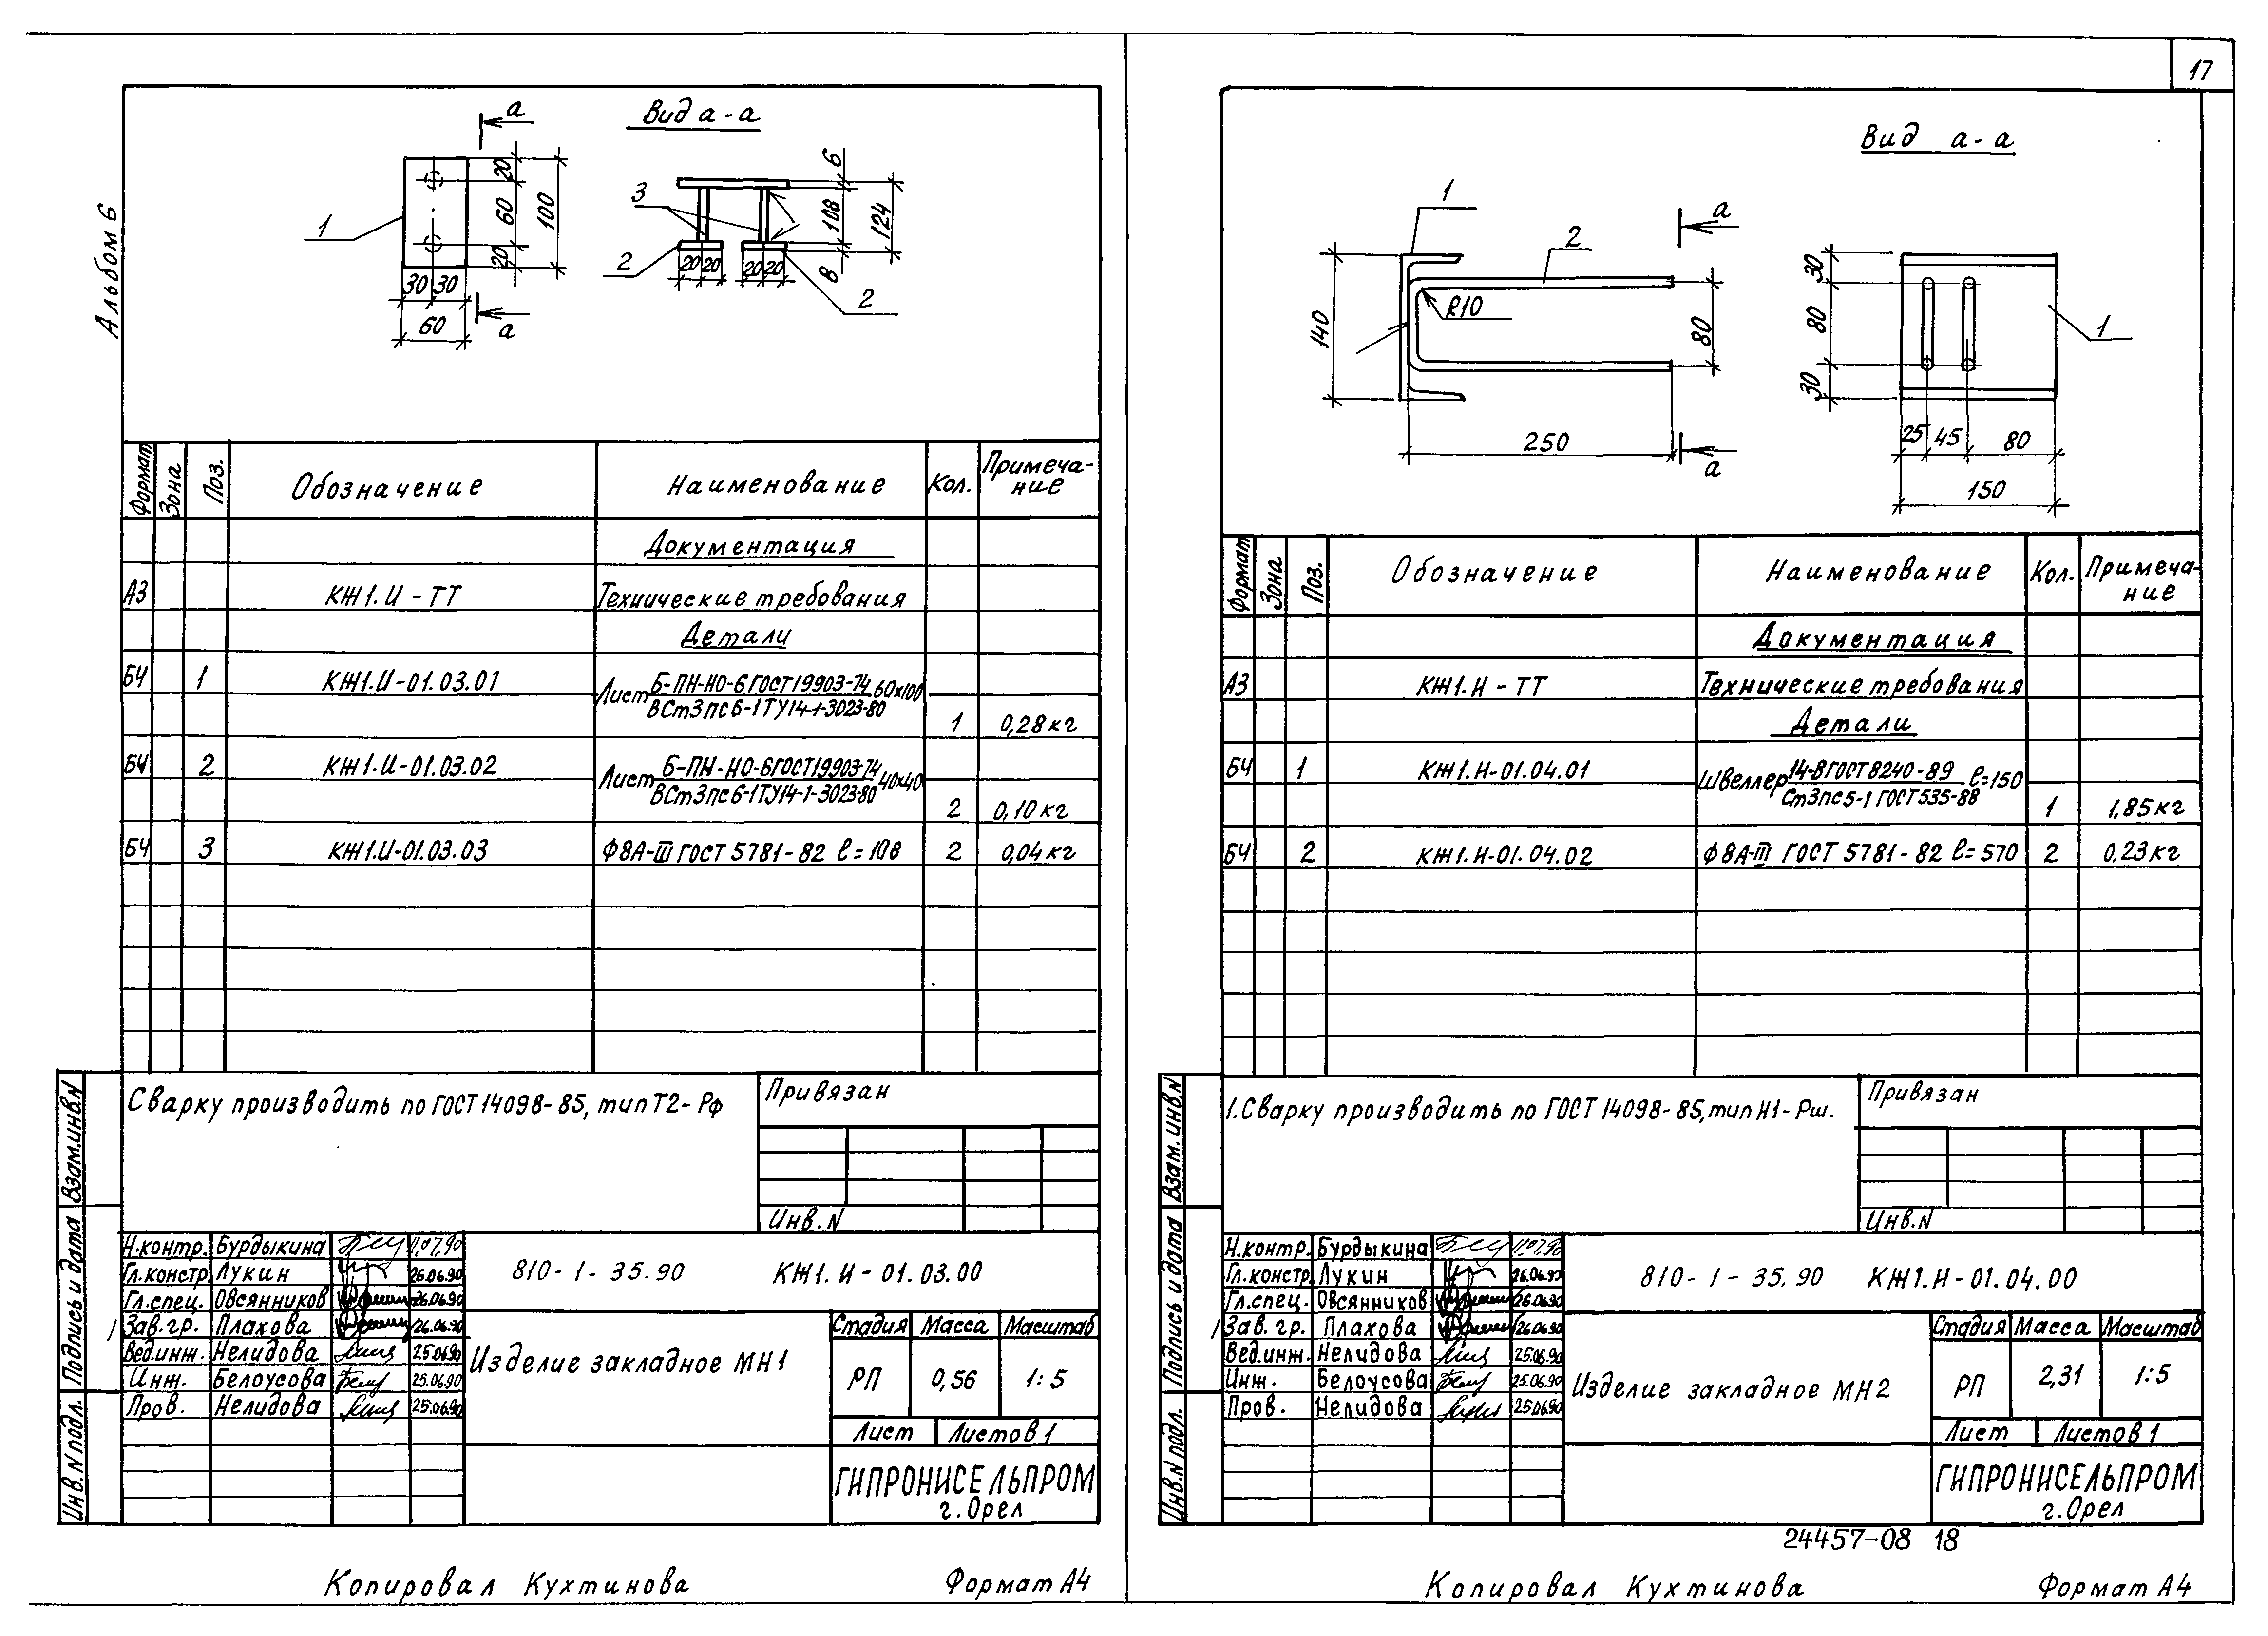 17
Альбом 6
Вид а-а
а
1
20
60
20
100
30 30
60
а
3
2
20 20
20 20
2
6
108
124
8
Формат
Зона
Поз.
Обозначение
Наименование
Кол.
Примеча-
ние
Документация
А3 КЖ1.И-ТТ Технические требования
Детали
БЧ 1 КЖ1.И-01.03.01 Лист Б-ПН-НО-6 ГОСТ 19903-74 60х100
ВСт3пс6-1 ТУ14-1-3023-80
1 0,28кг
БЧ 2 КЖ1.И-01.03.02 Лист Б-ПН-НО-6 ГОСТ 19903-74 40х40
ВСт3пс6-1 ТУ14-1-3023-80
2 0,10кг
БЧ 3 КЖ1.И-01.03.03 Ф8А-III ГОСТ 5781-82 ℓ=108 2 0,04кг
Сварку производить по ГОСТ 14098-85, тип Т2-Рф
Привязан
Инв.N
Взам.инв.N
Подпись и дата
Инв.N подл.
Н.контр. Бурдыкина 11.07.90
Гл.констр. Лукин 26.06.90
Гл.спец. Овсянников 26.06.90
Зав.гр. Плахова 26.06.90
Вед.инж. Нелидова 25.06.90
Инж. Белоусова 25.06.90
Пров. Нелидова 25.06.90
810-1-35.90 КЖ1.И-01.03.00
Изделие закладное МН1
Стадия Масса Масштаб
РП 0,56 1:5
Лист Листов 1
ГИПРОНИСЕЛЬПРОМ
г.Орел
Копировал Кухтинова
Формат А4
Вид а-а
1
2
а
R10
140
80
250
а
30
80
30
1
25 45 80
150
Формат
Зона
Поз.
Обозначение
Наименование
Кол.
Примеча-
ние
Документация
А3 КЖ1.И-ТТ Технические требования
Детали
БЧ 1 КЖ1.И-01.04.01 Швеллер 14-В ГОСТ 8240-89 ℓ=150
Ст3пс5-1 ГОСТ 535-88
1 1,85кг
БЧ 2 КЖ1.И-01.04.02 Ф8А-III ГОСТ 5781-82 ℓ=570 2 0,23кг
1.Сварку производить по ГОСТ 14098-85, тип Н1-Рш.
Привязан
Инв.N
Взам.инв.N
Подпись и дата
Инв.N подл.
Н.контр. Бурдыкина 11.07.90
Гл.констр. Лукин 26.06.90
Гл.спец. Овсянников 26.06.90
Зав.гр. Плахова 26.06.90
Вед.инж. Нелидова 25.06.90
Инж. Белоусова 25.06.90
Пров. Нелидова 25.06.90
810-1-35.90 КЖ1.И-01.04.00
Изделие закладное МН2
Стадия Масса Масштаб
РП 2,31 1:5
Лист Листов 1
ГИПРОНИСЕЛЬПРОМ
г.Орел
24457-08 18
Копировал Кухтинова
Формат А4